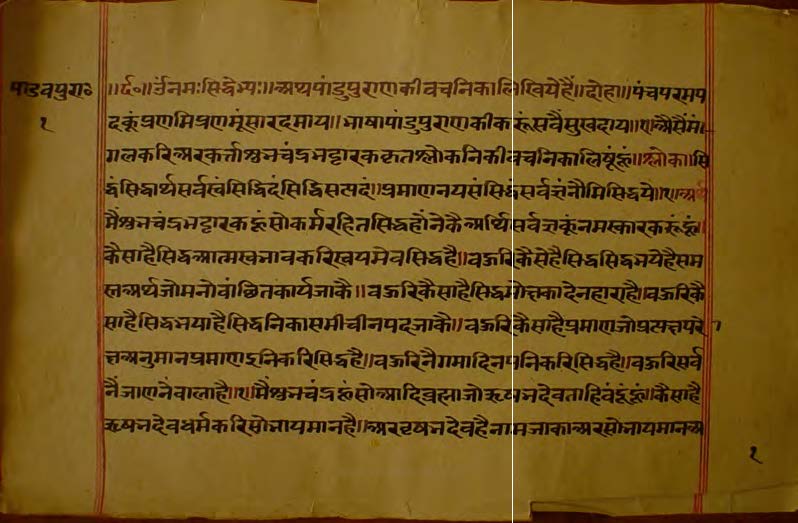 पांडवपुरा०
१
॥र्द०॥ र्उंनमःसिद्धेभ्यः॥अथपांडुपुराणकीवचनिकालिखियेहैं॥दोहा॥पंचपरमप
दकूंप्रणमिप्रणमूंसारदमाय॥भाषापांडुपुराणकीकरूंसवैसुखदाय॥१॥अैसैंमं
गलकरिअरकर्त्ताशुभचंद्रभट्टारककृतश्लोकनिकीवचनिकालिषूंहूं॥श्लोक॥सि
द्धंसिद्धार्थसर्वस्वंसिद्धिदंसिद्धिसत्पदं॥प्रमाणनयसंसिद्धंसर्वज्ञंनौमिसिद्धये॥१॥अर्थ
मैंशुभचंद्रभट्टारकहूंसोकर्मरहितसिद्धहोंनेकैअर्थिसर्वज्ञकूंनमस्कारकरूंहूं॥
कैसाहैसिद्धआत्मस्वभावकरिस्वयमेवसिद्धहै॥वऊरिकैसेहैसिद्धसिद्धभयेहैसम
स्तअर्थजोमनोवांछितकार्यजाकै॥वऊरिकैसाहैसिद्धमोक्षकादेनहाराहै॥वऊरिकै
साहैसिद्धभयाहैसिद्धनिकासमीचीनपदजाकै॥वऊरिकैसाहैप्रमाणजोप्रत्यक्षपरो
क्षअनुमानप्रमाणइनिकरिसिद्धहै॥वऊरिनैगमादिनयनिकरिसिद्धहै॥वऊरिसर्व
नैंजाणनेवालाहै॥१॥मैंशुभचंद्रहूंसोआदिब्रह्माजोऋषभदेवताहिवंदूंहूं॥कैसाहै
ऋषभदेवधर्मकरिसोभायमानहै॥अरवृषभदेवहैनामजाकाअरसोभायमानअ
१